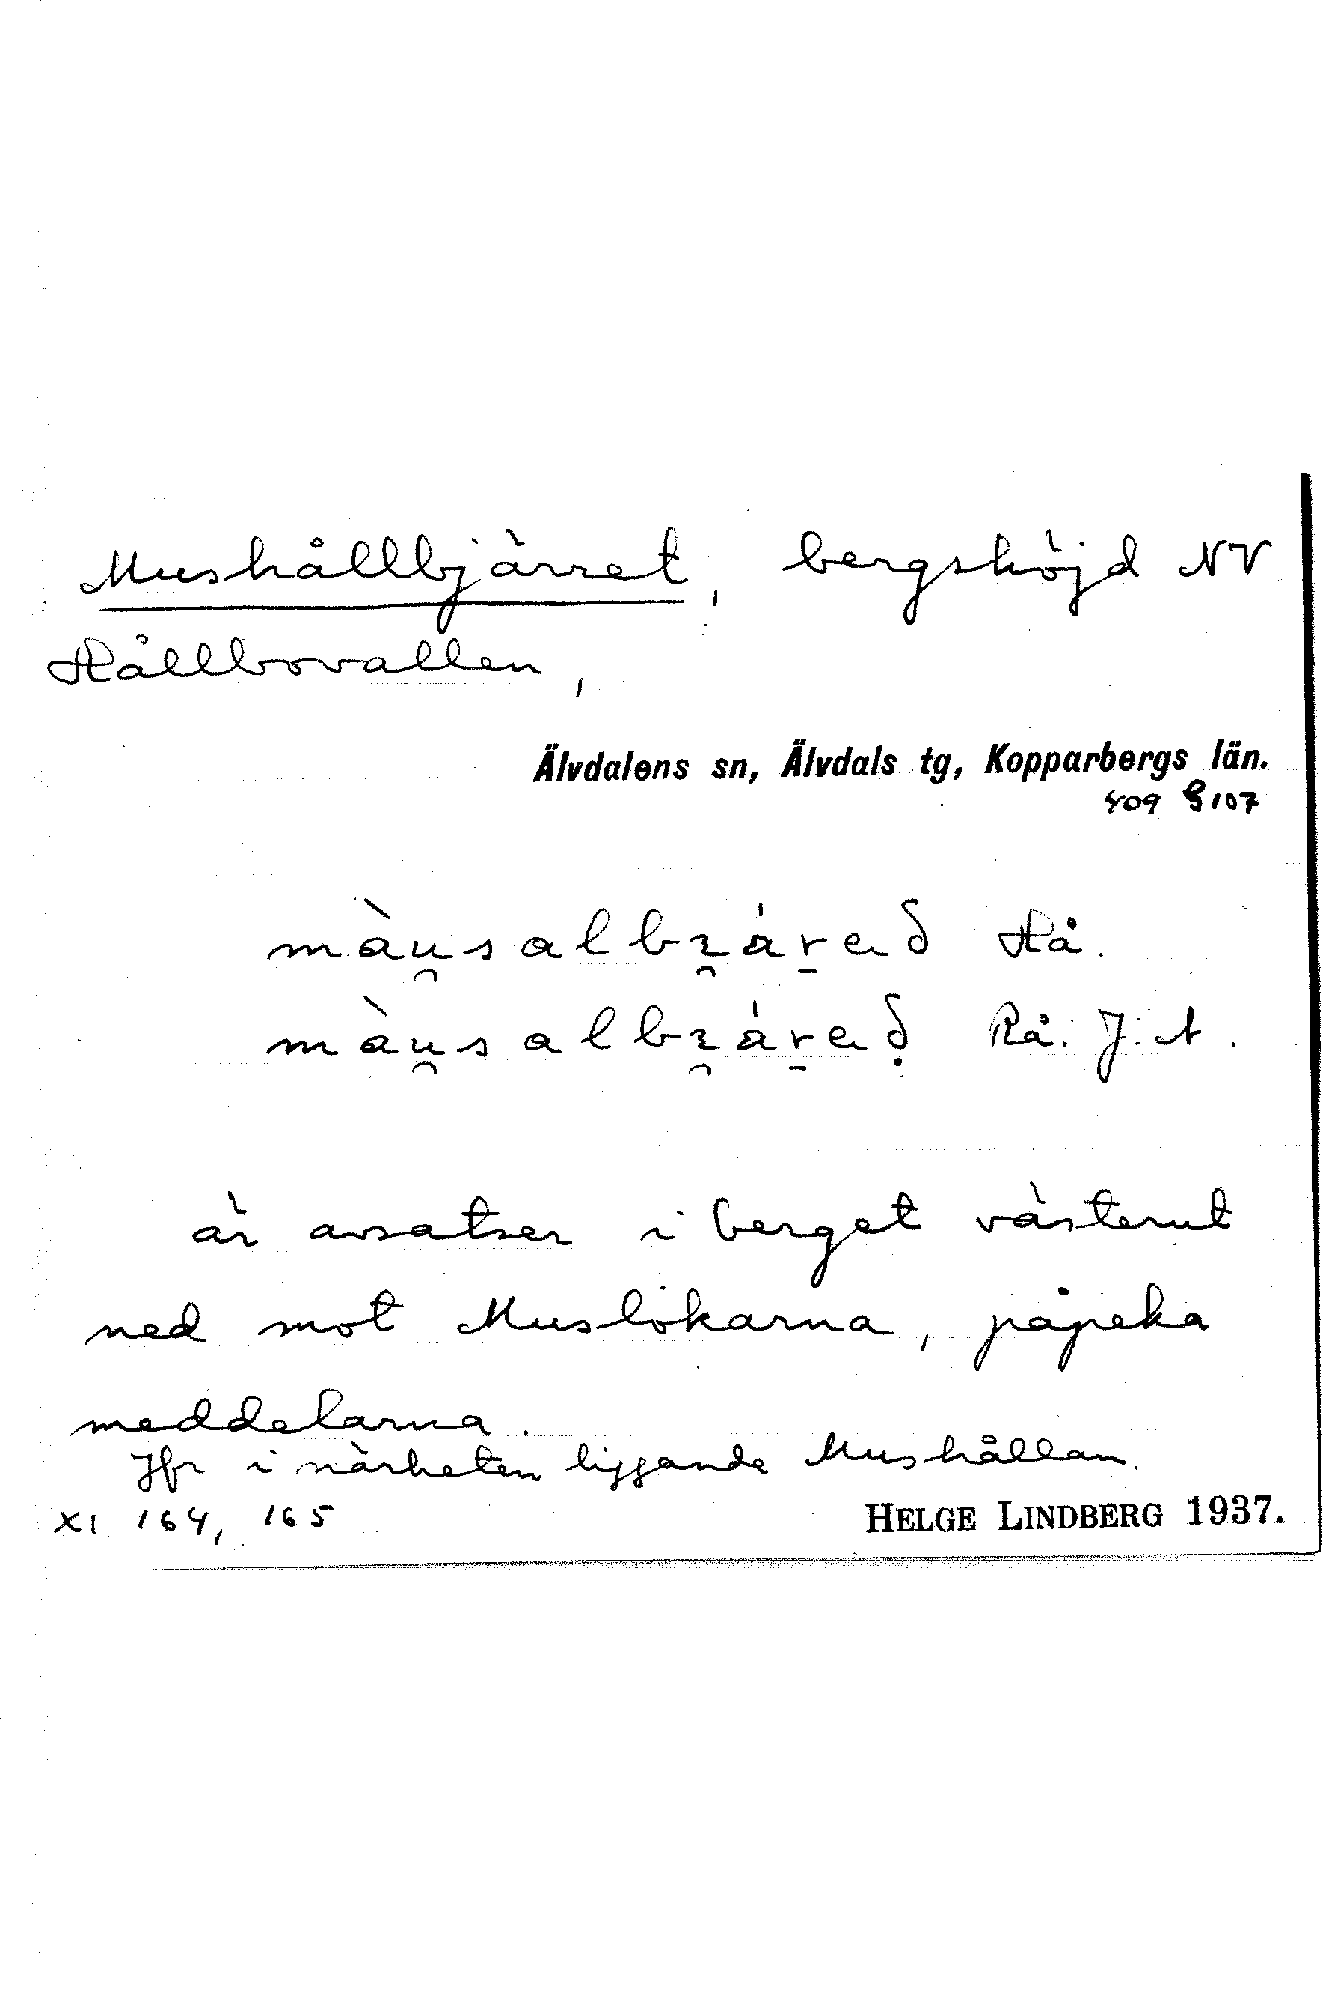 Mushållbjärret, bergshöjd NV
Hållbovallen,
Älvdalens sn, Älvdals tg, Kopparbergs län.
409 § 107
Hå.
Rå. J. A.
är avsatser i berget västerut
ned mot Muslokarna, påpeka
meddelarna.
Jfr i närheten liggande Mushållan.
XI 164, 165
HELGE LINDBERG 1937.